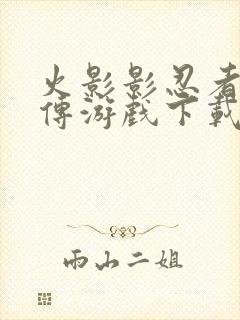 火影影忍者
傳游戲下載
雨山二姐